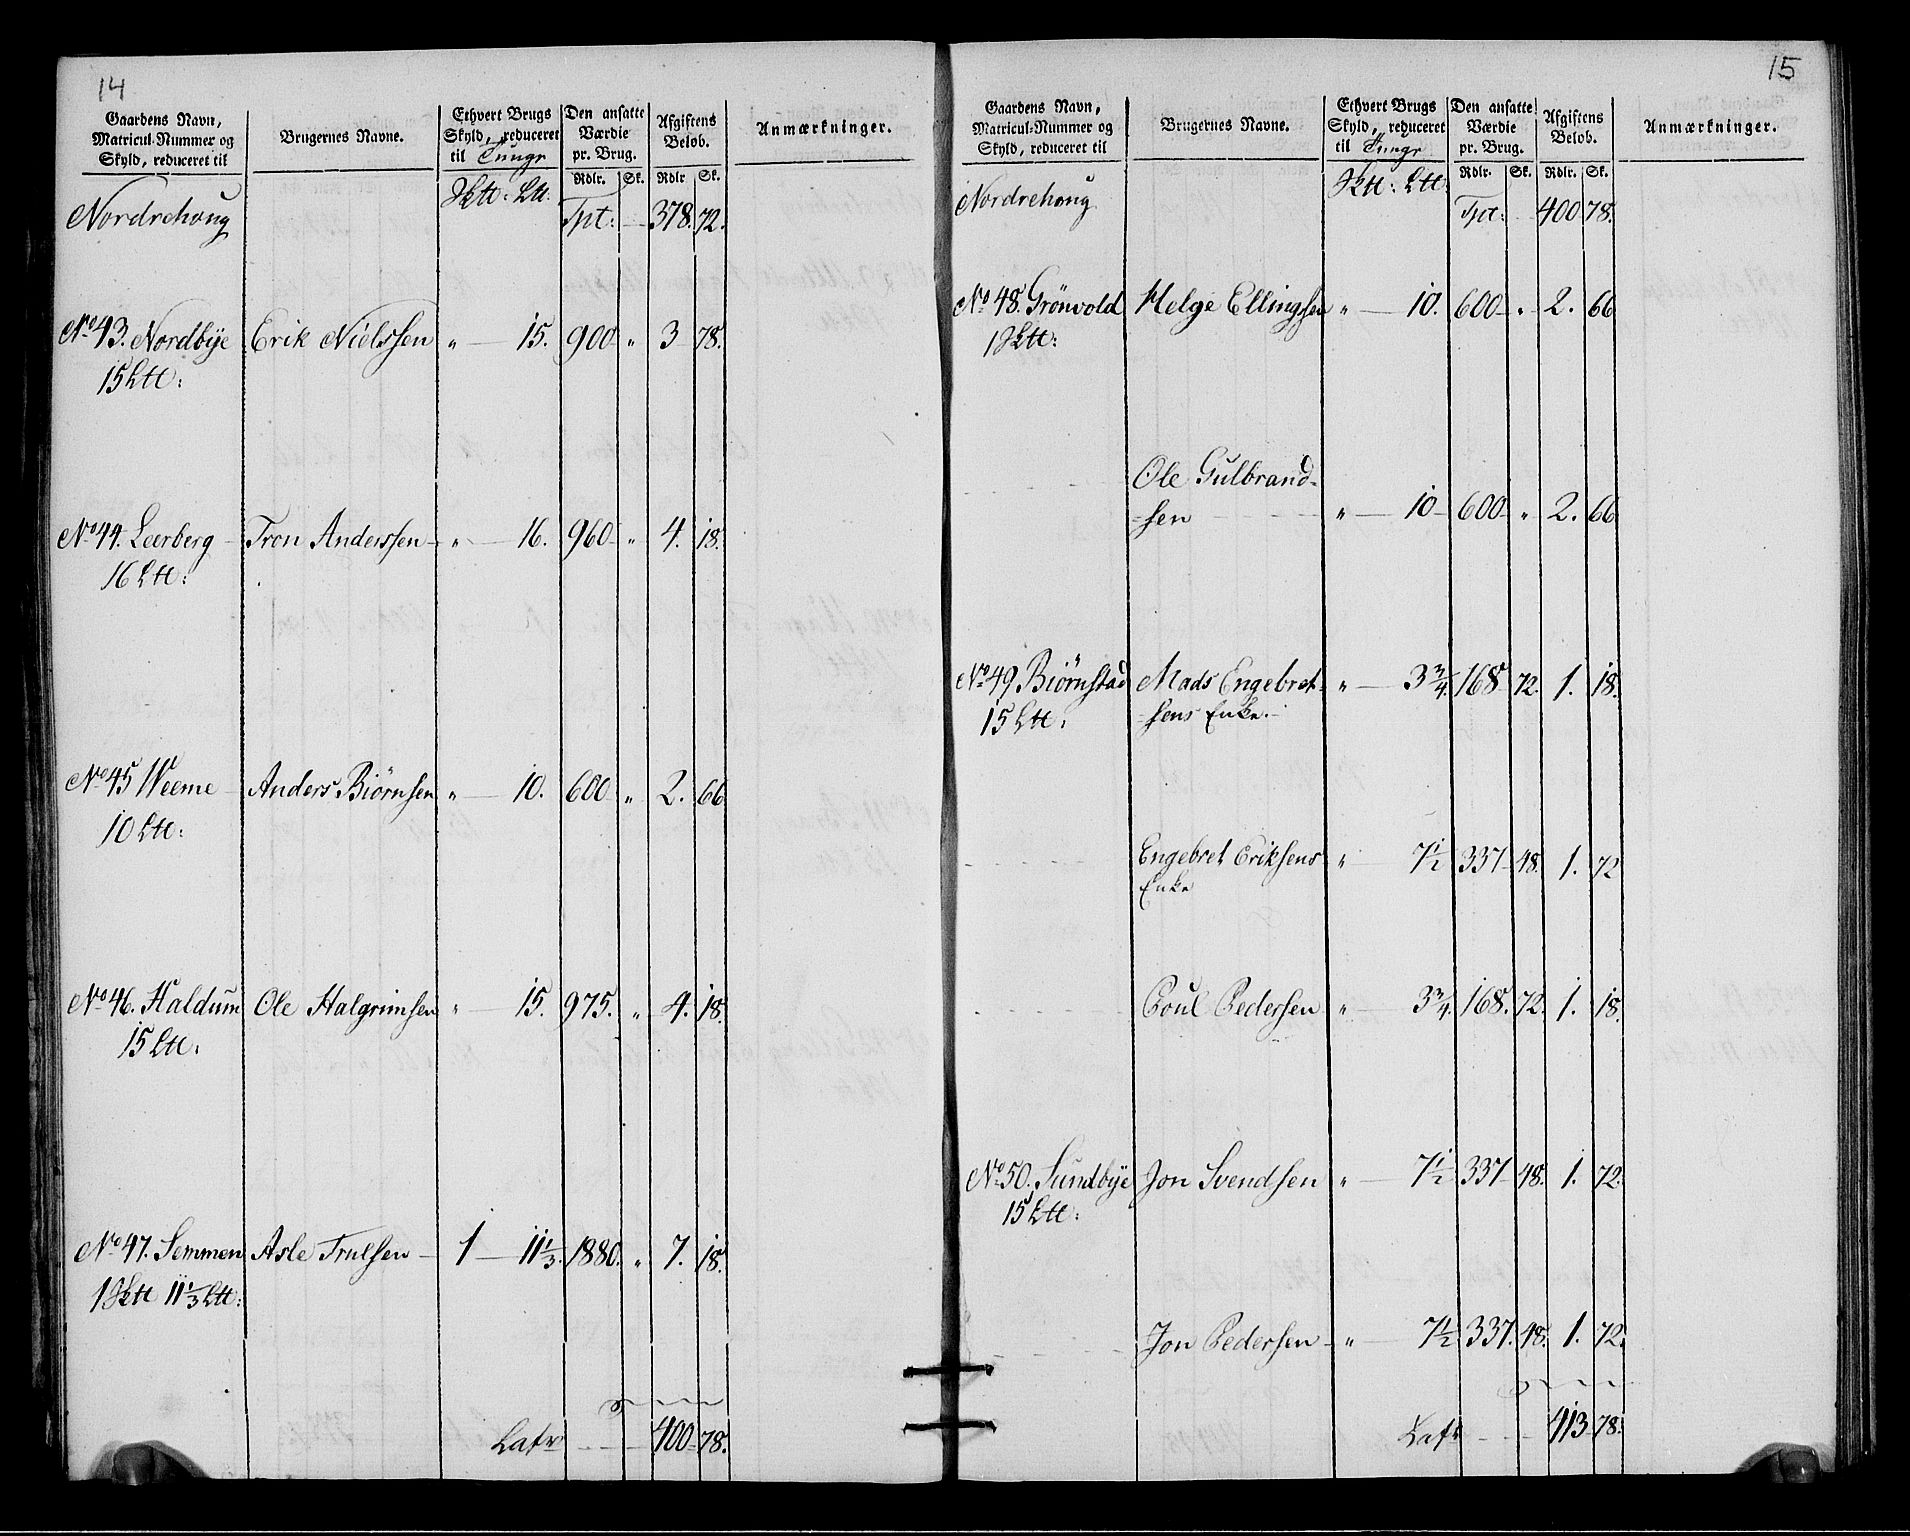 14
Gaardens Navn, Matricul-Nummer og Skyld, reduceret til | Brugernes Navne. | Ethvert Brugs Skyld, reduceret til Tunge | Den ansatte Værdie pr. Brug. | Afgiftens Beløb. | Anmærkninger.
Rdlr. | Sk. | Rdlr | Sk.
Nordrehoug | | Sktt: Ltt: | Tpt: | 378. 72.
No 43. Nordbÿe | Erik Nielssen | " — 15. | 900 " | 3 78.
15 Ltt:
No 44. Leerberg | Tron Anderssen | " — 16. | 960 " | 4. 18.
16 Ltt:
No 45 Weeme | Anders Biørnsen | " — 10. | 600 " | 2. 66
10 Ltt:
No 46. Haldum | Ole Halgrimsen | " — 15. | 975. " | 4. 18.
15 Ltt:
No 47. Semmen | Asle Trulsen | 1 — 11 1/3. | 1880. " | 7. 18.
1 Sktt 11 1/3 Ltt:
Latr | 400 78.
15
Gaardens Navn, Matricul-Nummer og Skyld, reduceret til | Brugernes Navne. | Ethvert Brugs Skyld, reduceret til Tunge | Den ansatte Værdie pr. Brug. | Afgiftens Beløb. | Anmærkninger.
Rdlr. | Sk. | Rdlr. | Sk.
Nordrehoug | | Sktt: Ltt: | Tpt: | 400 78.
No 48. Grönvold | Helge Ellingsen | " — 10. | 600 " | 2. 66
1 Sktt:
Ole Gulbrand-
-sen | " — 10 | 600 " | 2. 66
No 49 Biörnstad | Mads Engebret- | " — 3 3/4. | 168 72. | 1. 18.
15 Ltt: | -sens Enke.
Engebret Eriksens | " — 7 1/2 | 337 48. | 1. 72
Enke
Poul Pedersen | " — 3 3/4. | 168. 72. | 1. 18.
No 50. Sundbÿe | Jon Svendsen | " — 7 1/2 | 337 48. | 1. 72.
15 Ltt:
Jon Pedersen | " — 7 1/2 | 337. 48. | 1. 72.
Latr | 413 78.